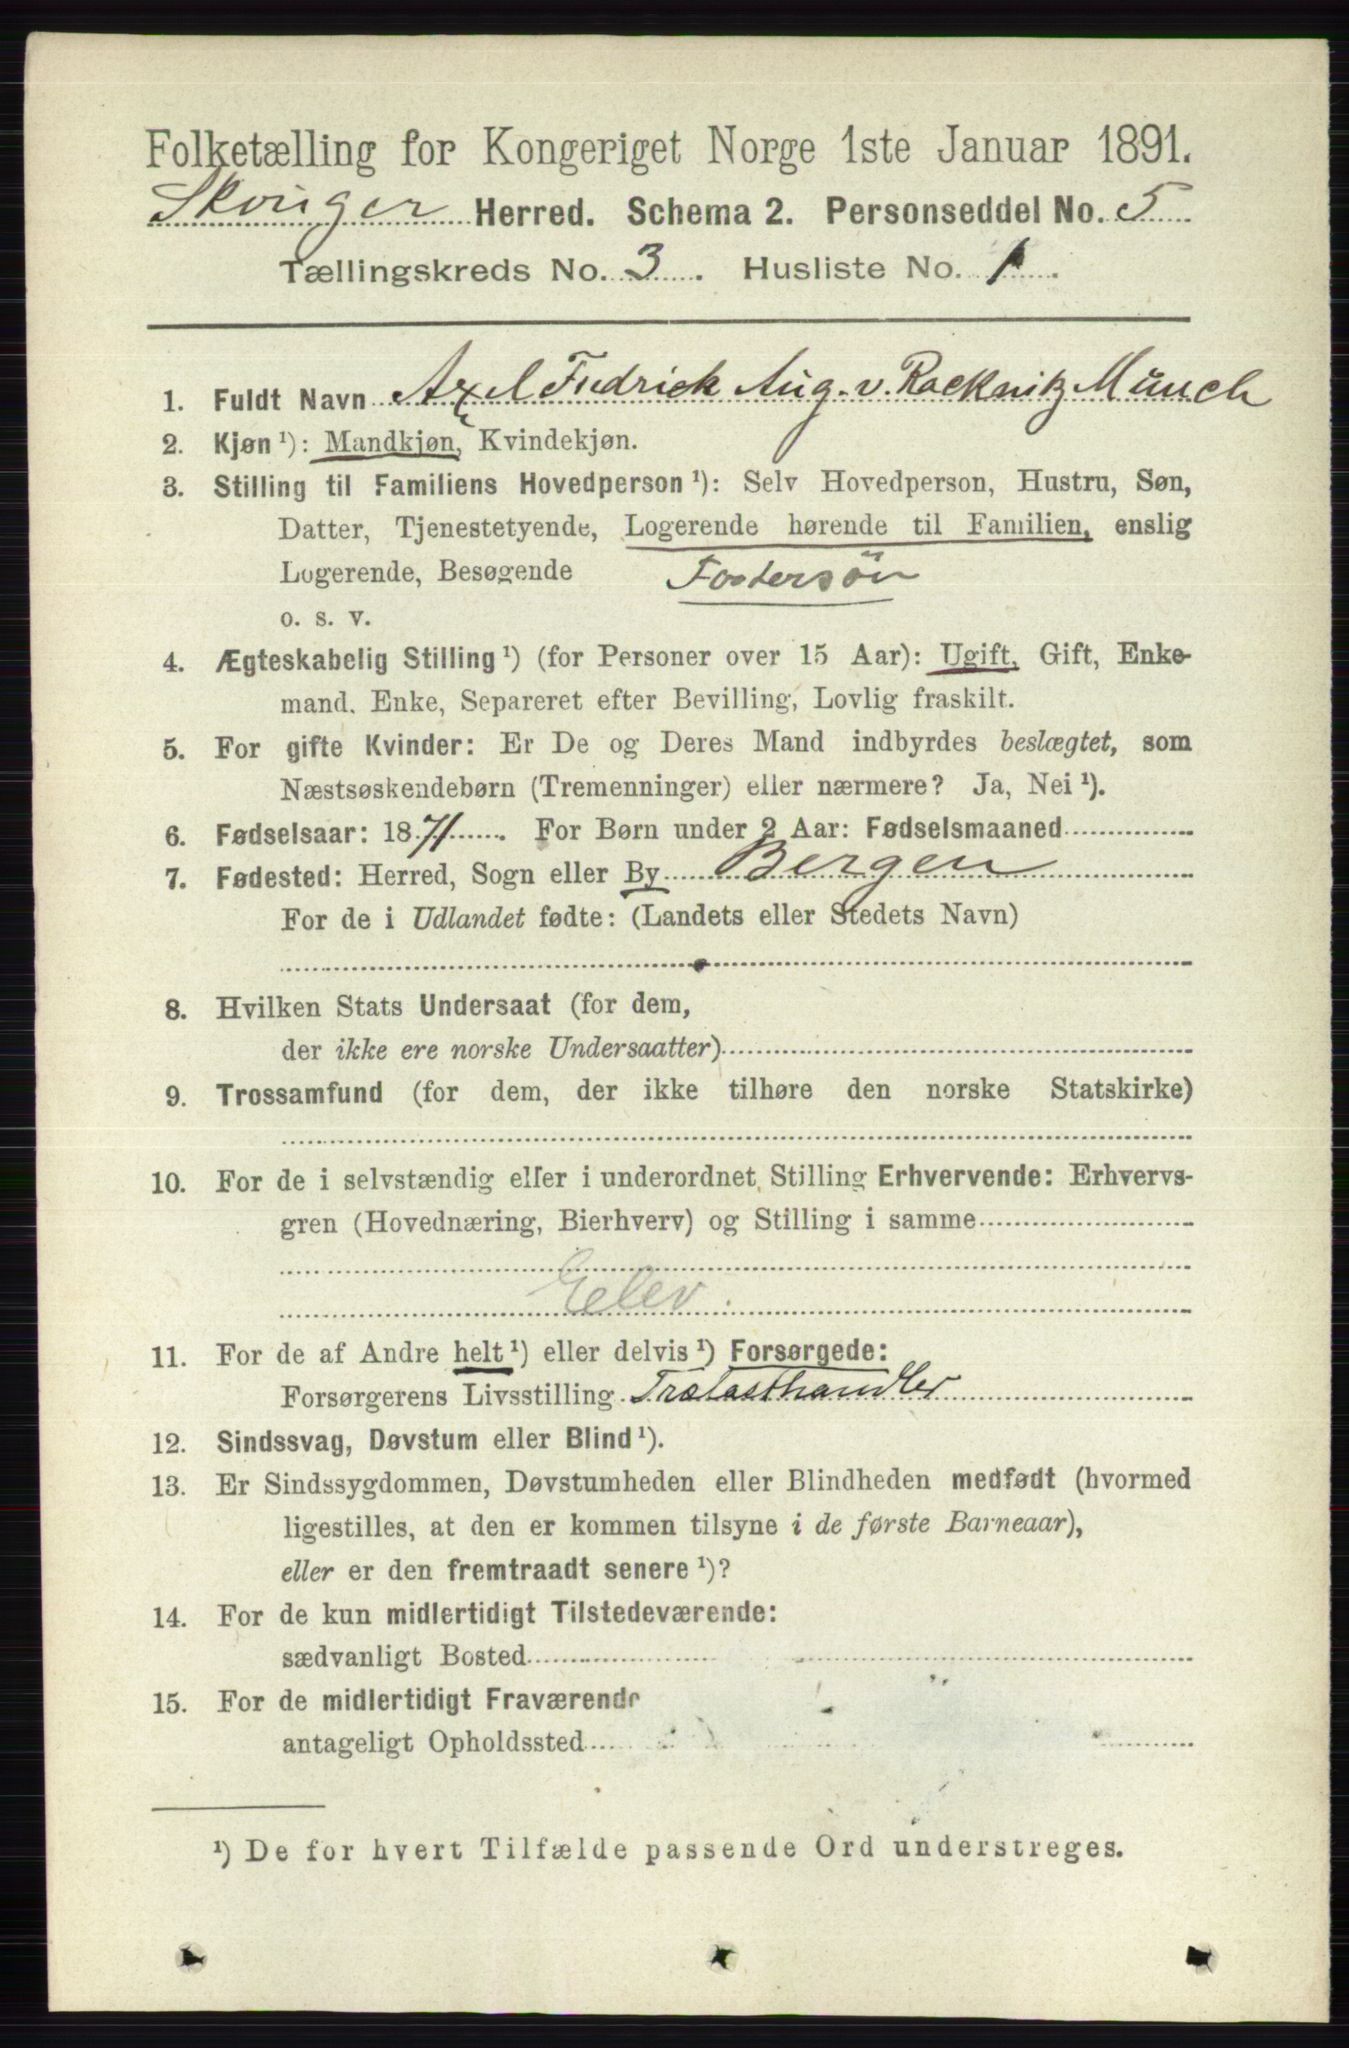 Folketælling for Kongeriget Norge 1ste Januar 1891.
Skouger Herred. Schema 2. Personseddel No. 5
Tællingskreds No. 3. Husliste No. 1.
1. Fuldt Navn Axel Fredrick Aug. v. Racknitz Münch
2. Kjøn ¹): Mandkjøn, Kvindekjøn.
3. Stilling til Familiens Hovedperson ¹): Selv Hovedperson, Hustru, Søn,
Datter, Tjenestetyende, Logerende hørende til Familien, enslig
Logerende, Besøgende Fostersön
o. s. v.
4. Ægteskabelig Stilling ¹) (for Personer over 15 Aar): Ugift, Gift, Enke-
mand, Enke, Separeret efter Bevilling, Lovlig fraskilt.
5. For gifte Kvinder: Er De og Deres Mand indbyrdes beslægtet, som
Næstsøskendebørn (Tremenninger) eller nærmere? Ja, Nei ¹).
6. Fødselsaar: 1871. For Børn under 2 Aar: Fødselsmaaned
7. Fødested: Herred, Sogn eller By Bergen
For de i Udlandet fødte: (Landets eller Stedets Navn)
8. Hvilken Stats Undersaat (for dem,
der ikke ere norske Undersaatter)
9. Trossamfund (for dem, der ikke tilhøre den norske Statskirke)
10. For de i selvstændig eller i underordnet Stilling Erhvervende: Erhvervs-
gren (Hovednæring, Bierhverv) og Stilling i samme
Elev.
11. For de af Andre helt ¹) eller delvis ¹) Forsørgede:
Forsørgerens Livsstilling Trælasthandler
12. Sindssvag, Døvstum eller Blind ¹).
13. Er Sindssygdommen, Døvstumheden eller Blindheden medfødt (hvormed
ligestilles, at den er kommen tilsyne i de første Barneaar),
eller er den fremtraadt senere ¹)?
14. For de kun midlertidigt Tilstedeværende:
sædvanligt Bosted
15. For de midlertidigt Fraværende
antageligt Opholdssted
¹) De for hvert Tilfælde passende Ord understreges.